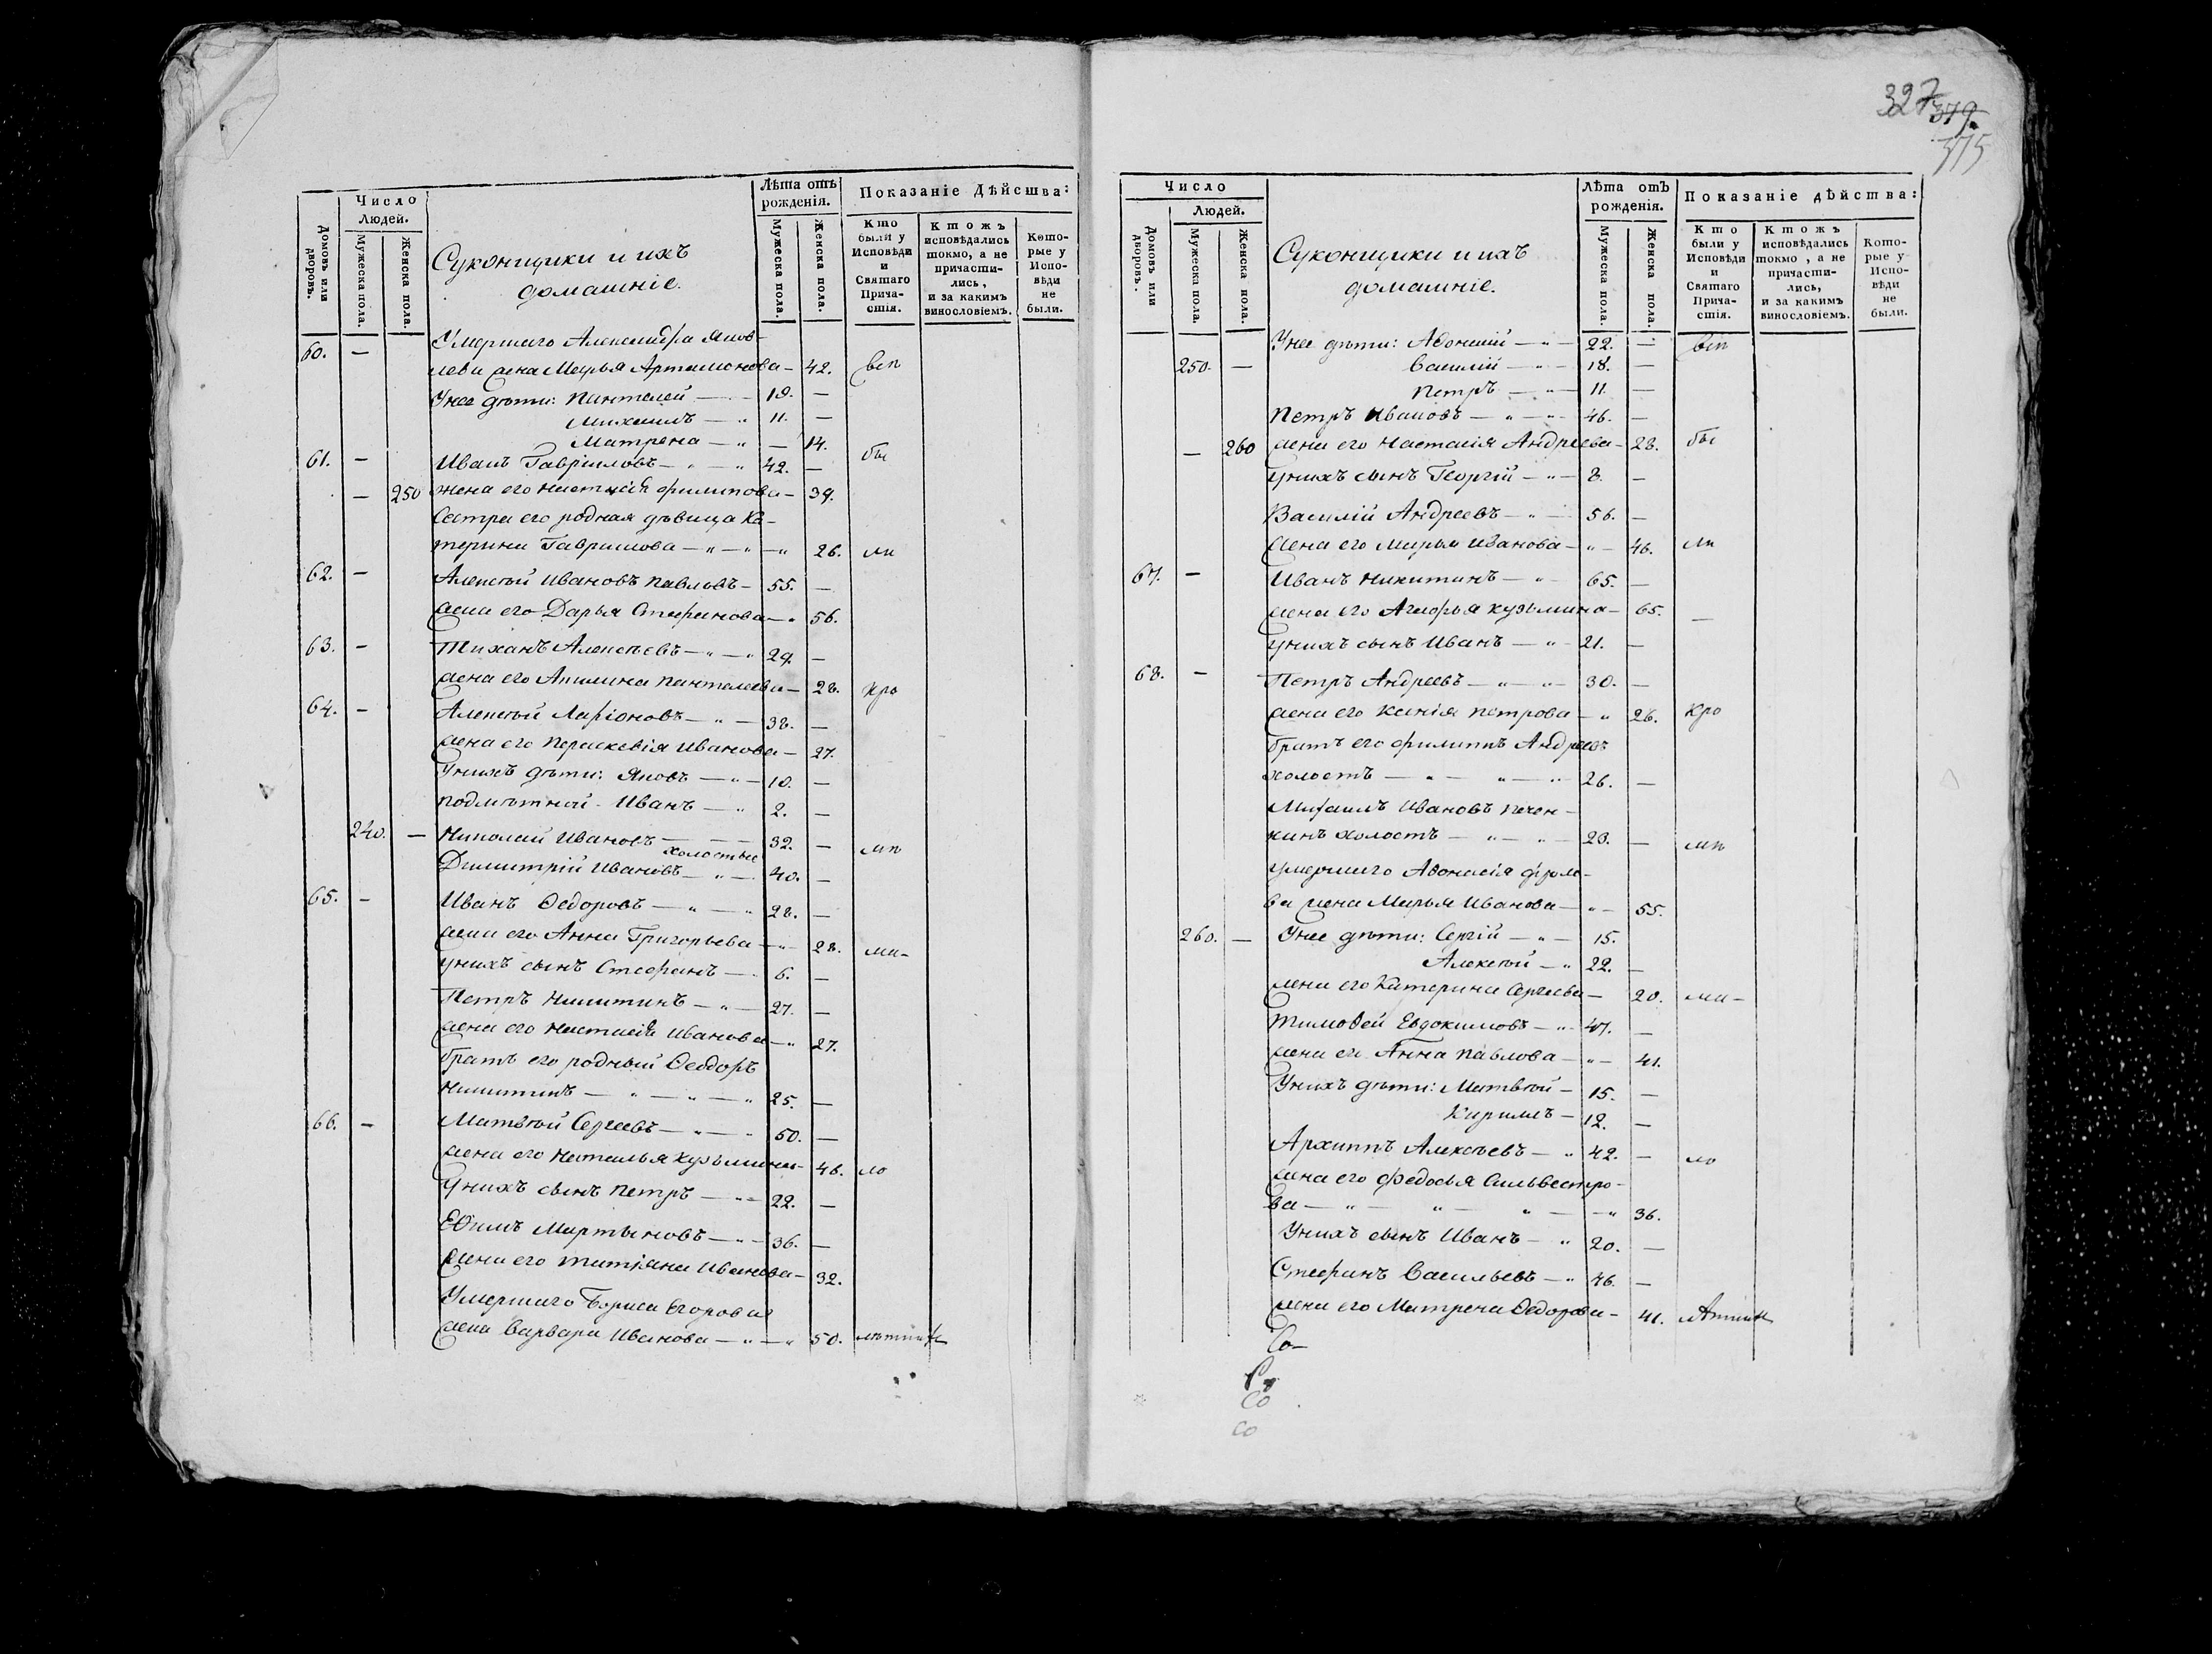 327 379.
375
Число
Людей.
Домовъ или дворовъ.
Мужеска пола.
Женска пола.
Суконщики и ихъ
домашніе.
Лѣта отъ
рожденія.
Мужеска пола.
Женска пола.
Показаніе Дѣйства:
Кто
были у
Исповѣди
и
Святаго
Прича-
стія.
Ктожъ
исповѣдались
токмо, а не
причасти-
лись,
и за какимъ
винословіемъ.
Кото-
рые у
Испо-
вѣди
не
были.
60. — Умершаго Александра Яков-
лева жена Марья Артамонова — 42. всп
У нее дѣти: Пантелей — 19. —
Михаилъ — " 11. —
Матрена — " — 14.
61. — Иванъ Гавриловъ — " — " 42. — бы
— 250 жена его Настасія Филипова — 39.
Сестра его родная дѣвица Ка-
терина Гаврилова — " — " — " 26. ли
62. — Алексѣй Ивановъ Павловъ — 55. —
жена его Дарья Стефанова — " 56.
63. — Тиханъ Алексѣевъ — " — " 29. —
жена его Акилина Пантелеева — 28. кро
64. — Алексѣй Ларіоновъ — " — 38. —
жена его Параскевія Иванова — 27.
У нихъ дѣти: Яковъ — " — 10. —
подмѣтной Иванъ — " 2. —
240. — Николай Ивановъ — 32. — мѣ
холостые
Димитрій Ивановъ — " — 40. —
65. — Иванъ Ѳедоровъ — " — " 28. —
жена его Анна Григорьева — " 28. ми-
у нихъ сынъ Стефанъ — 6. —
Петръ Никитинъ — " — 27. —
жена его Настасія Иванова — " 27.
братъ его родный Ѳеодоръ
Никитинъ — " — " — " 25. —
66. — Матвѣй Сергеевъ — " — " 50. —
жена его Наталья Кузьмина — 46. ло
У нихъ сынъ Петръ — " — 22. —
Еѳимъ Мартыновъ — " — 36. —
жена его Татіяна Иванова — 32.
Умершаго Бориса Егорова
жена Варвара Иванова — " — " 50. лѣтних
Число
Людей.
Домовъ или дворовъ.
Мужеска пола.
Женска пола.
Суконщики и ихъ
домашніе.
Лѣта отъ
рожденія.
Мужеска пола.
Женска пола.
Показаніе дѣйства:
Кто
были у
Исповѣди
и
Святаго
Прича-
стія.
Ктожъ
исповѣдались
токмо, а не
причасти-
лись,
и за какимъ
винословіемъ.
Кото-
рые у
Испо-
вѣди
не
были.
У нее дѣти: Аѳонасій — " — 22. — всп
250. — Василій — " — 18. —
Петръ — " — 11. —
Петръ Ивановъ — " — " 46. —
— 260 жена его Настасія Андреева — 28. бы
у нихъ сынъ Георгій — " — 8. —
Василій Андреевъ — " — 56. —
жена его Марья Иванова — " — 46. ли
67. — Иванъ Никитинъ — " 65. —
жена его Агафья Кузьмина — 65. —
у нихъ сынъ Иванъ — " — 21. —
68. — Петръ Андреевъ — " — " 30. —
жена его Ксенія Петрова — " 26. кро
братъ его Филиппъ Андреевъ
холостъ — " — " — " 26. —
Михаилъ Ивановъ Печен-
кинъ холостъ — " — " 23. — мѣ
умершаго Аѳонасія Фроло-
ва жена Марья Иванова — " — 55.
260. — У нее дѣти: Сергій — " — 15.
Алексѣй — " 22. —
жена его Катерина Сергеева — 20. ми-
Тимоѳей Евдокимовъ — " 47. —
жена его Анна Павлова — " — 41.
У нихъ дѣти: Матвѣй — 15. —
Кирилъ — 12. —
Архиппъ Алексѣевъ — " 42. — ло
жена его Федосья Сильвестро-
ва — " — " " — " 36.
У нихъ сынъ Иванъ — " 20. —
Стефанъ Васильевъ — " 46. —
жена его Матрена Ѳедорова — 41. лѣтних
Со-
Со
со